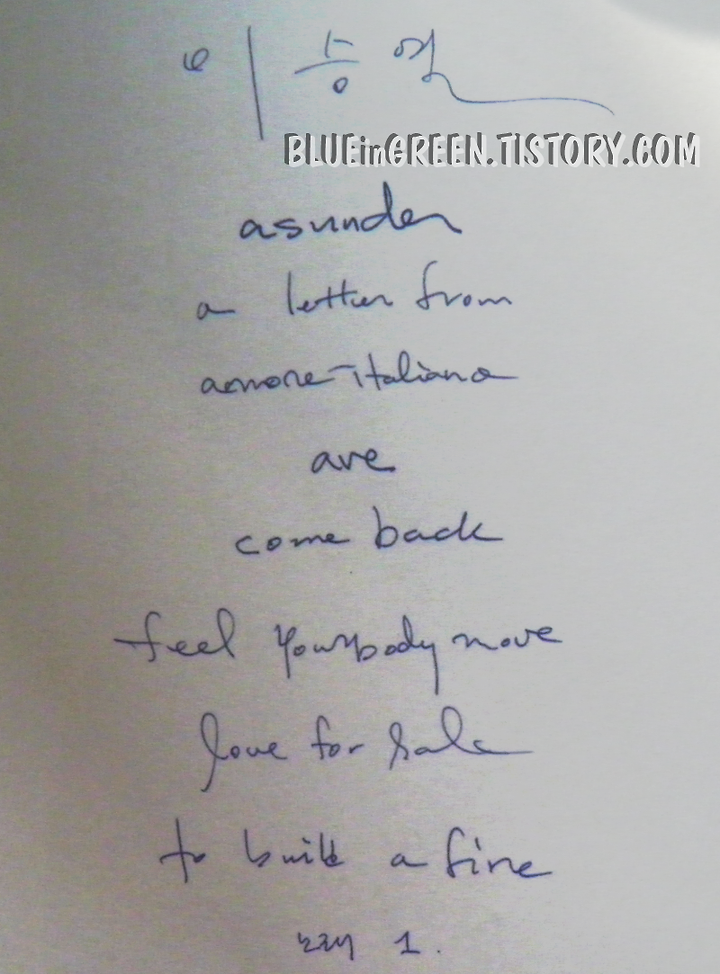 이승열
BLUEinGREEN.TISTORY.COM
asunder
a letter from
amore-italiano
ave
come back
feel your body move
love for sale
to build a fire
노래 1.